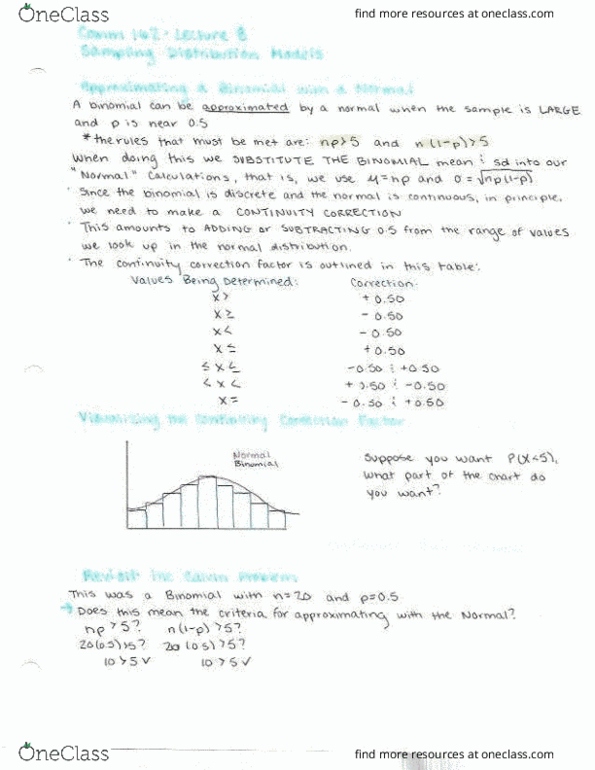 OneClass
find more resources at oneclass.com
Comm 162 - Lecture 8
Sampling Distribution Models
Approximating a Binomial with a Normal
A binomial can be approximated by a normal when the sample is LARGE
and p is near 0.5
*the rules that must be met are: np>5 and n(1-p)>5
When doing this we SUBSTITUTE THE BINOMIAL mean & sd into our
"Normal" calculations, that is, we use μ=np and σ=√np(1-p)
· Since the binomial is discrete and the normal is continuous, in principle,
we need to make a CONTINUITY CORRECTION
· This amounts to ADDING or SUBTRACTING 0.5 from the range of values
we look up in the normal distribution.
· The continuity correction factor is outlined in this table:
Values Being Determined: Correction:
X > +0.50
X ≥ -0.50
X < -0.50
X ≤ +0.50
≤ X ≤ -0.50 & +0.50
< X < +0.50 & -0.50
X = -0.50 & +0.50
Visualizing the Continuity Correction Factor
Normal
Binomial
Suppose you want P(X<5),
what part of the chart do
you want?
Revisit the Problem
This was a Binomial with n=20 and p=0.5
→ Does this mean the criteria for approximating with the Normal?
np >5? n(1-p) >5?
20(0.5)>5? 20(0.5)>5?
10>5✓ 10>5✓
OneClass
find more resources at oneclass.com